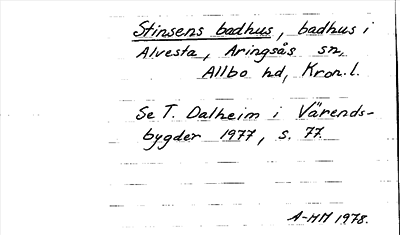 Stinsens badhus, badhus i
Alvesta, Aringsås sn,
Allbo hd, Kron.l.
Se T. Dalheim i Värends-
bygder 1977, s. 77.
A-HM 1978.